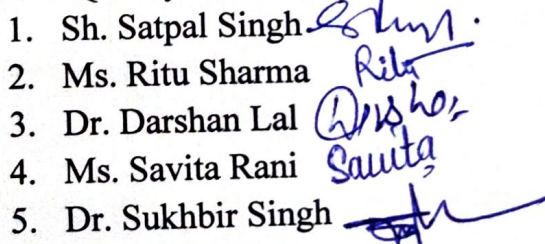 1. Sh. Satpal Singh
2. Ms. Ritu Sharma Ritu
3. Dr. Darshan Lal
4. Ms. Savita Rani Savita
5. Dr. Sukhbir Singh